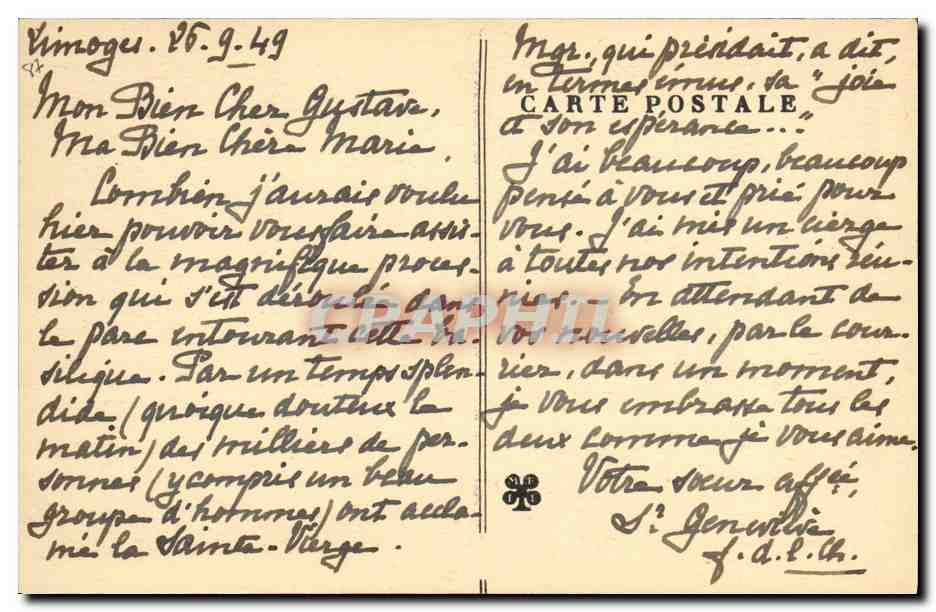 Limoges. 26-9-49
87
Mon Bien Cher Gustave,
Ma Bien Chère Marie,
Combien j'aurais voulu
hier pouvoir vous faire assis-
ter à la magnifique proces-
sion qui s'est déroulée dans
le parc entourant cette ba-
silique. Par un temps splen-
dide (quoique douteux le
matin) des milliers de per-
sonnes (y compris un beau
groupe d'hommes) ont accla-
mé la Sainte-Vierge.
Mgr, qui présidait, a dit,
en termes émus, sa "joie
CARTE POSTALE
et son espérance..."
J'ai beaucoup, beaucoup
pensé à vous et prié pour
vous. J'ai mis un cierge
à toutes nos intentions réu-
nies. - En attendant de
vos nouvelles, par le cour-
rier, dans un moment,
je vous embrasse tous les
deux comme je vous aime.
Votre sœur affée,
Sr Geneviève
f. d. l. Ch.
CPAPHIL